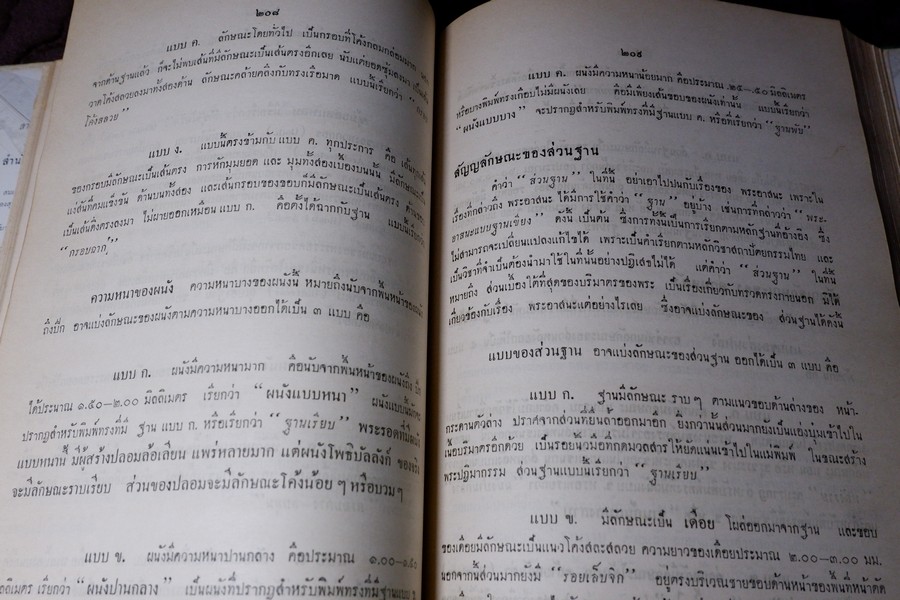 ๒๐๘
แบบ ค. ลักษณะโดยทั่วไป เป็นกรอบที่โค้งกลมกล่อมมาก
จากด้านฐานแล้ว ก็จะไม่พบเส้นที่มีลักษณะเป็นเส้นตรงอีกเลย นับแต่ยอดซุ้มลงมา
วาดโค้งสลวยลงมาทั้งสองด้าน ลักษณะคล้ายคลึงกับทรงเรือมาด แบบนี้เรียกว่า
โค้งสลวย"
แบบ ง. แบบนี้ตรงข้ามกับแบบ ค. ทุกประการ คือ
ของกรอบมีลักษณะเป็นเส้นตรง การหักมุมยอด และ มุมทั้งสองเบื้องบนนั้น มีลักษณะเป็น
แง่สันที่คมแข็งขัน ด้านบนทั้งสอง และเส้นกรอบของขอบก็มีลักษณะเป็นเส้นตรง
เป็นเส้นดิ่งตรงลงมา ไม่ผายออกเหมือนแบบ ก. คือตั้งได้ฉากกับฐาน แบบนี้เรียกว่า
"กรอบฉาก"
ความหนาของผนัง ความหนาบางของผนังนี้ หมายถึงนับจากพื้นหน้าของผนัง
ถึงปีก อาจแบ่งลักษณะของผนังตามความหนาบางออกได้เป็น ๓ แบบ คือ
แบบ ก. ผนังมีความหนามาก คือนับจากพื้นหน้าของผนังถึง ปีก
ได้ประมาณ ๑.๕๐–๒.๐๐ มิลลิเมตร เรียกว่า "ผนังแบบหนา" ผนังแบบนี้มัก
ปรากฏสำหรับพิมพ์ทรงที่มี ฐาน แบบ ก. หรือเรียกว่า "ฐานเรียบ" พระรอดที่มีผนัง
แบบหนานี้ มีผู้สร้างปลอมล้อเลียน แพร่หลายมาก แต่ผนังโพธิบัลลังก์ ของจริง
จะมีลักษณะราบเรียบ ส่วนของปลอมจะมีลักษณะโค้งน้อย ๆ หรือบวม ๆ
แบบ ข. ผนังมีความหนาปานกลาง คือประมาณ ๑.๐๐–๑.๕๐
มิลลิเมตร เรียกว่า "ผนังปานกลาง" เป็นผนังที่ปรากฏสำหรับพิมพ์ทรงที่มีฐานแบบ
๒๐๙
แบบ ค. ผนังมีความหนาน้อยมาก คือประมาณ .๒๕–.๕๐ มิลลิเมตร
หรือบางพิมพ์ทรงเกือบไม่มีผนังเลย คือมีเพียงเส้นขอบของผนังเท่านั้น แบบนี้เรียกว่า
"ผนังแบบบาง" จะปรากฏสำหรับพิมพ์ทรงที่มีฐานแบบ ค. หรือที่เรียกว่า "ฐานพับ"
สัญญลักษณะของส่วนฐาน
คำว่า "ส่วนฐาน" ในที่นี้ อย่าเอาไปปนกับเรื่องของ พระอาสนะ เพราะใน
เรื่องที่กล่าวถึง พระอาสนะ ได้มีการใช้คำว่า "ฐาน" อยู่บ้าง เช่นการที่กล่าวว่า "พระ-
อาสนะแบบฐานเขียง" ดังนี้ เป็นต้น ซึ่งการทั้งนี้เป็นการเรียกตามหลักฐานที่อ้างอิง ซึ่ง
ไม่สามารถจะเปลี่ยนแปลงแก้ไขได้ เพราะเป็นคำเรียกตามหลักวิชาสถาปัตยกรรมไทย และ
เป็นวิชาที่จำเป็นต้องนำมาใช้ในที่นั้นอย่างปฏิเสธไม่ได้ แต่คำว่า "ส่วนฐาน" ในที่นี้
หมายถึง ส่วนเบื้องใต้ที่สุดของบริมาตรของพระ เป็นเรื่องเกี่ยวกับทรวดทรงภายนอก มิได้
เกี่ยวข้องกับเรื่อง พระอาสนะแต่อย่างไรเลย ซึ่งอาจแบ่งลักษณะของ ส่วนฐานได้ดังนี้
แบบของส่วนฐาน อาจแบ่งลักษณะของส่วนฐาน ออกได้เป็น ๓ แบบ คือ
แบบ ก. ฐานมีลักษณะ ราบ ๆ ตามแนวขอบด้านล่างของ หน้า-
กระดานตัวล่าง ปราศจากส่วนที่ยื่นล้ำออกมาอีก ยิ่งกว่านั้นส่วนมากยังเป็นแอ่งบุ๋มเข้าไปใน
เนื้อบริมาตรอีกด้วย เป็นรอยนิ้วมือที่กดมวลสาร ให้ยัดแน่นเข้าไปในแม่พิมพ์ ในขณะสร้าง
พระปฏิมากรรม ส่วนฐานแบบนี้เรียกว่า "ฐานเรียบ"
แบบ ข. มีลักษณะเป็น เดือย โผล่ออกมาจากฐาน และขอบ
ของเดือยมีลักษณะเป็นแนวโค้งสละสลวย ความยาวของเดือยประมาณ ๒.๐๐–๓.๐๐ มม.
นอกจากนั้นส่วนมากยังมี "รอยเล็บจิก" อยู่ตรงบริเวณชายขอบด้านหน้าของพื้นที่หน้าตัด